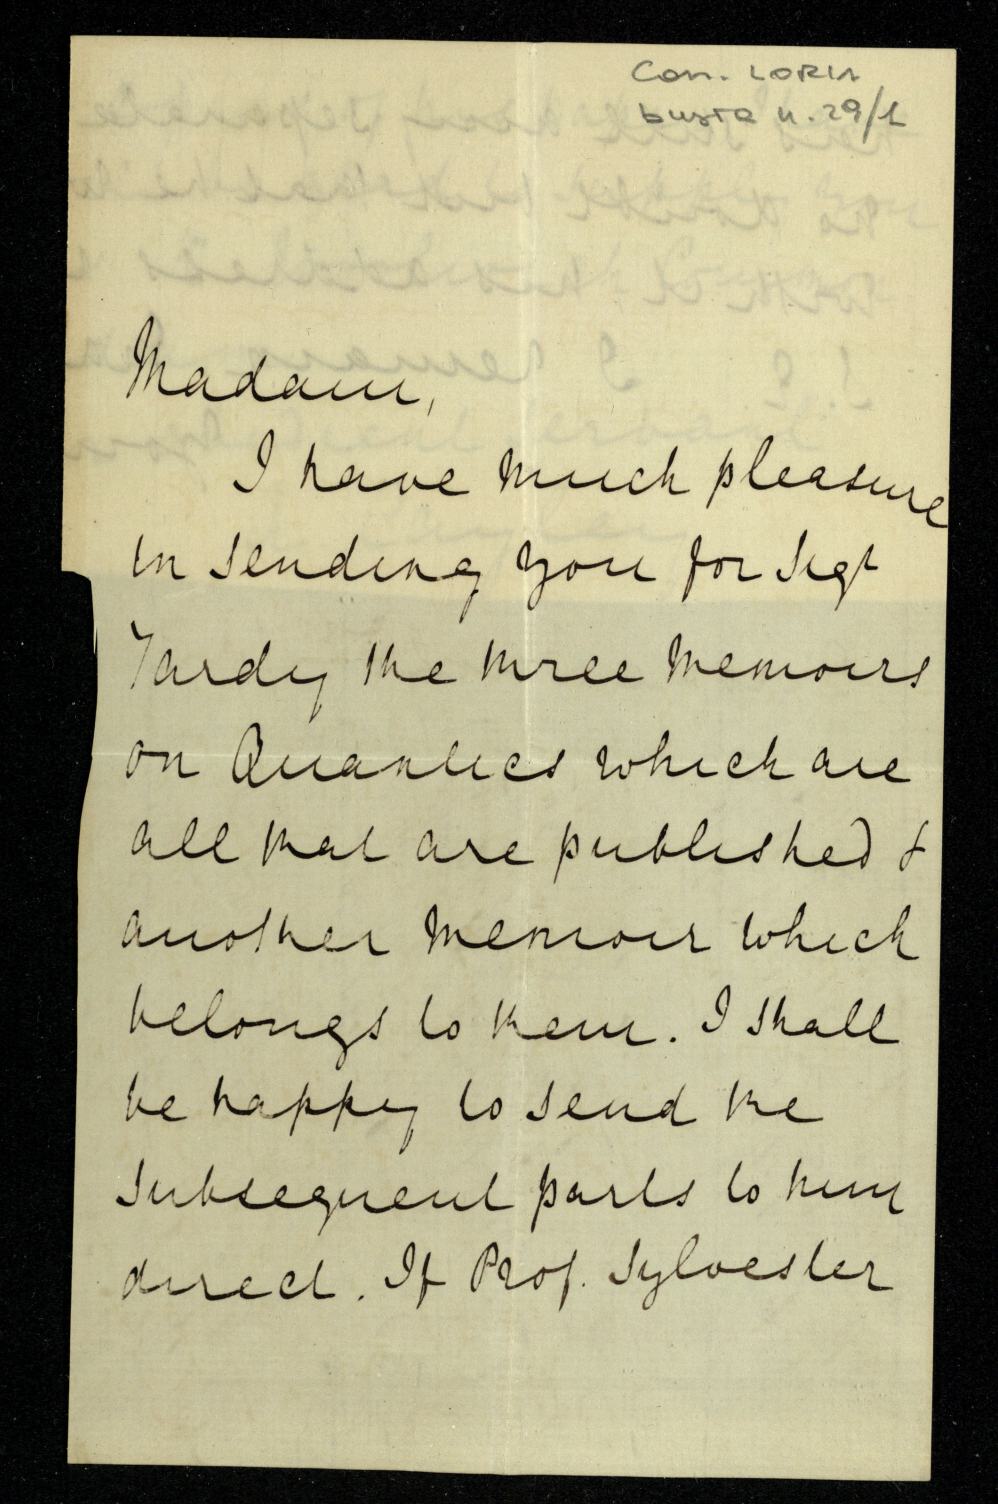 Con. LORIA
busta n. 29/1
Madam,
I have much pleasure
in sending you for Sigr
Tardy the three Memoirs
on Quantics which are
all that are published &
another Memoir which
belongs to them. I shall
be happy to send the
subsequent parts to him
direct. If Prof. Sylvester